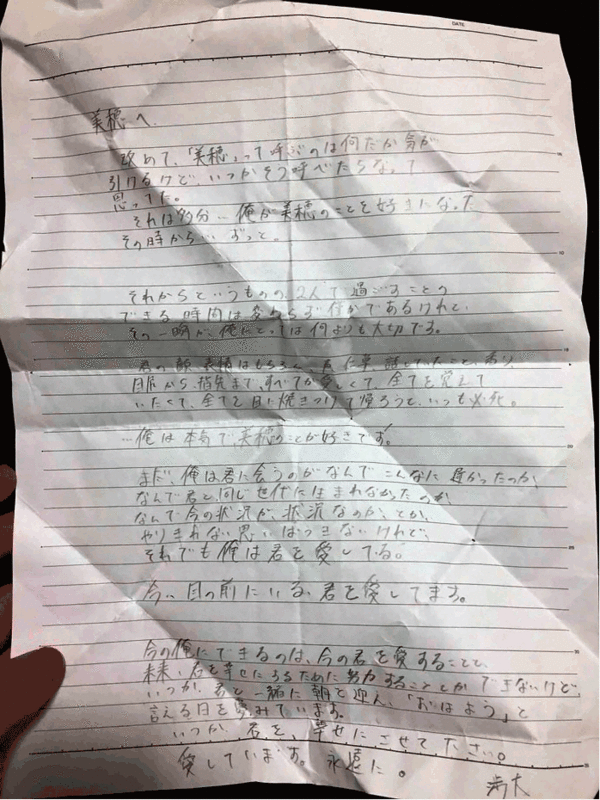 DATE
美穂へ
改めて、「美穂」って呼ぶのは何だか気が
引けるけど、いつかそう呼べたらなって
思ってた。
それは多分… 俺が美穂のことを好きになった
その時から… ずっと。
それからというものの2人で過ごすことの
できる時間は変わらず僅かであるけれど、
その一瞬が、俺にとっては何よりも大切です。
君の顔、表情はもちろん、話していたこと、香り、
目尻から、指先まで、すべてが愛しくて、全てを覚えて
いたくて、全てを目に焼きつけて帰ろうと、いつも必死。
…俺は本気で美穂のことが好きです。
まだ、俺は君に会うのがなんでこんなに遅かったのか、
なんで君と同じ世代に生まれなかったのか
なんで今の状況が、状況なのか、とか、
やりきれない思いはつきないけれど、
それでも俺は君を愛してる。
今、目の前にいる、君を愛してます。
今の俺にできるのは、今の君を愛することと、
未来、君を幸せにするために努力することしかできないけど、
いつか、君と一緒に朝を迎え、「おはよう」と
言える日を夢みています。
いつか、君を、幸せにさせてください。
愛しています。永遠に。